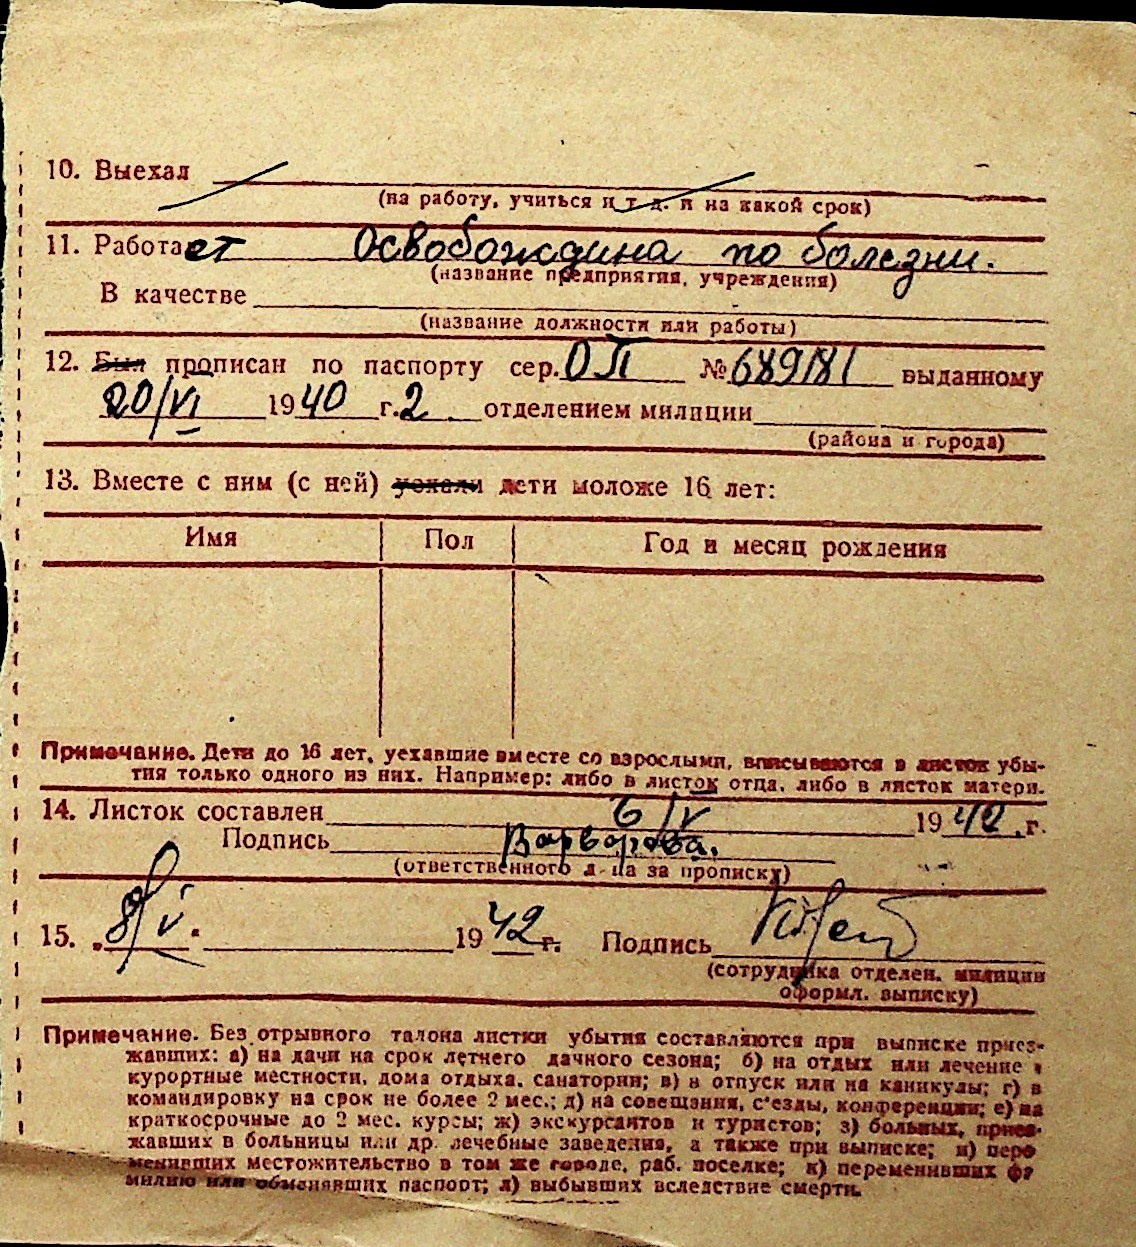 10. Выехал
(на работу, учиться и т. д. и на какой срок)
11. Работает Освобождина по болезни.
(название предприятия, учреждения)
В качестве
(название должности или работы)
12. Был прописан по паспорту сер. ОП № 689181 выданному
20/VI 1940 г. 2 отделением милиции
(района и города)
13. Вместе с ним (с ней) уехали дети моложе 16 лет:
Имя Пол Год и месяц рождения
Примечание. Дети до 16 лет, уехавшие вместе со взрослыми, вписываются в листок убы-
тия только одного из них. Например: либо в листок отца, либо в листок матери.
14. Листок составлен 6/V 1942. г.
Подпись Варварова.
(ответственного л-ца за прописку)
15. „8/V." 1942 г. Подпись
(сотрудника отделен. милиции
оформл. выписку)
Примечание. Без отрывного талона листки убытия составляются при выписке приез-
жавших: а) на дачи на срок летнего дачного сезона; б) на отдых или лечение в
курортные местности, дома отдыха, санатории; в) в отпуск или на каникулы; г) в
командировку на срок не более 2 мес.; д) на совещания, с'езды, конференции; е) на
краткосрочные до 2 мес. курсы; ж) экскурсантов и туристов; з) больных, приез-
жавших в больницы или др. лечебные заведения, а также при выписке; и) пере
менивших местожительство в том же городе, раб. поселке; к) переменивших фа
милию или обменявших паспорт; л) выбывших вследствие смерти.